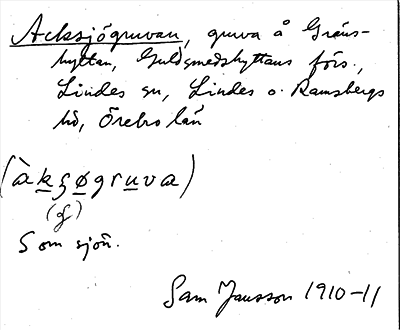 Acksjögruvan, gruva å Gräns-
hyttan, Guldsmedshyttans förs.,
Lindes sn, Lindes o. Ramsbergs
hd, Örebro län
(àkʂøgruva)
(g)
Som sjön.
Sam Jansson 1910-11